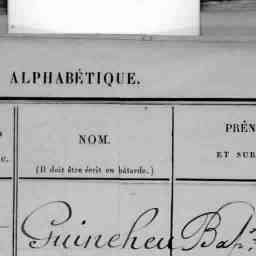 ALPHABÉTIQUE.
NOM.
PRÉN
(Il doit être écrit en bâtarde.)
ET SUR
c.
Guineheu Bap.